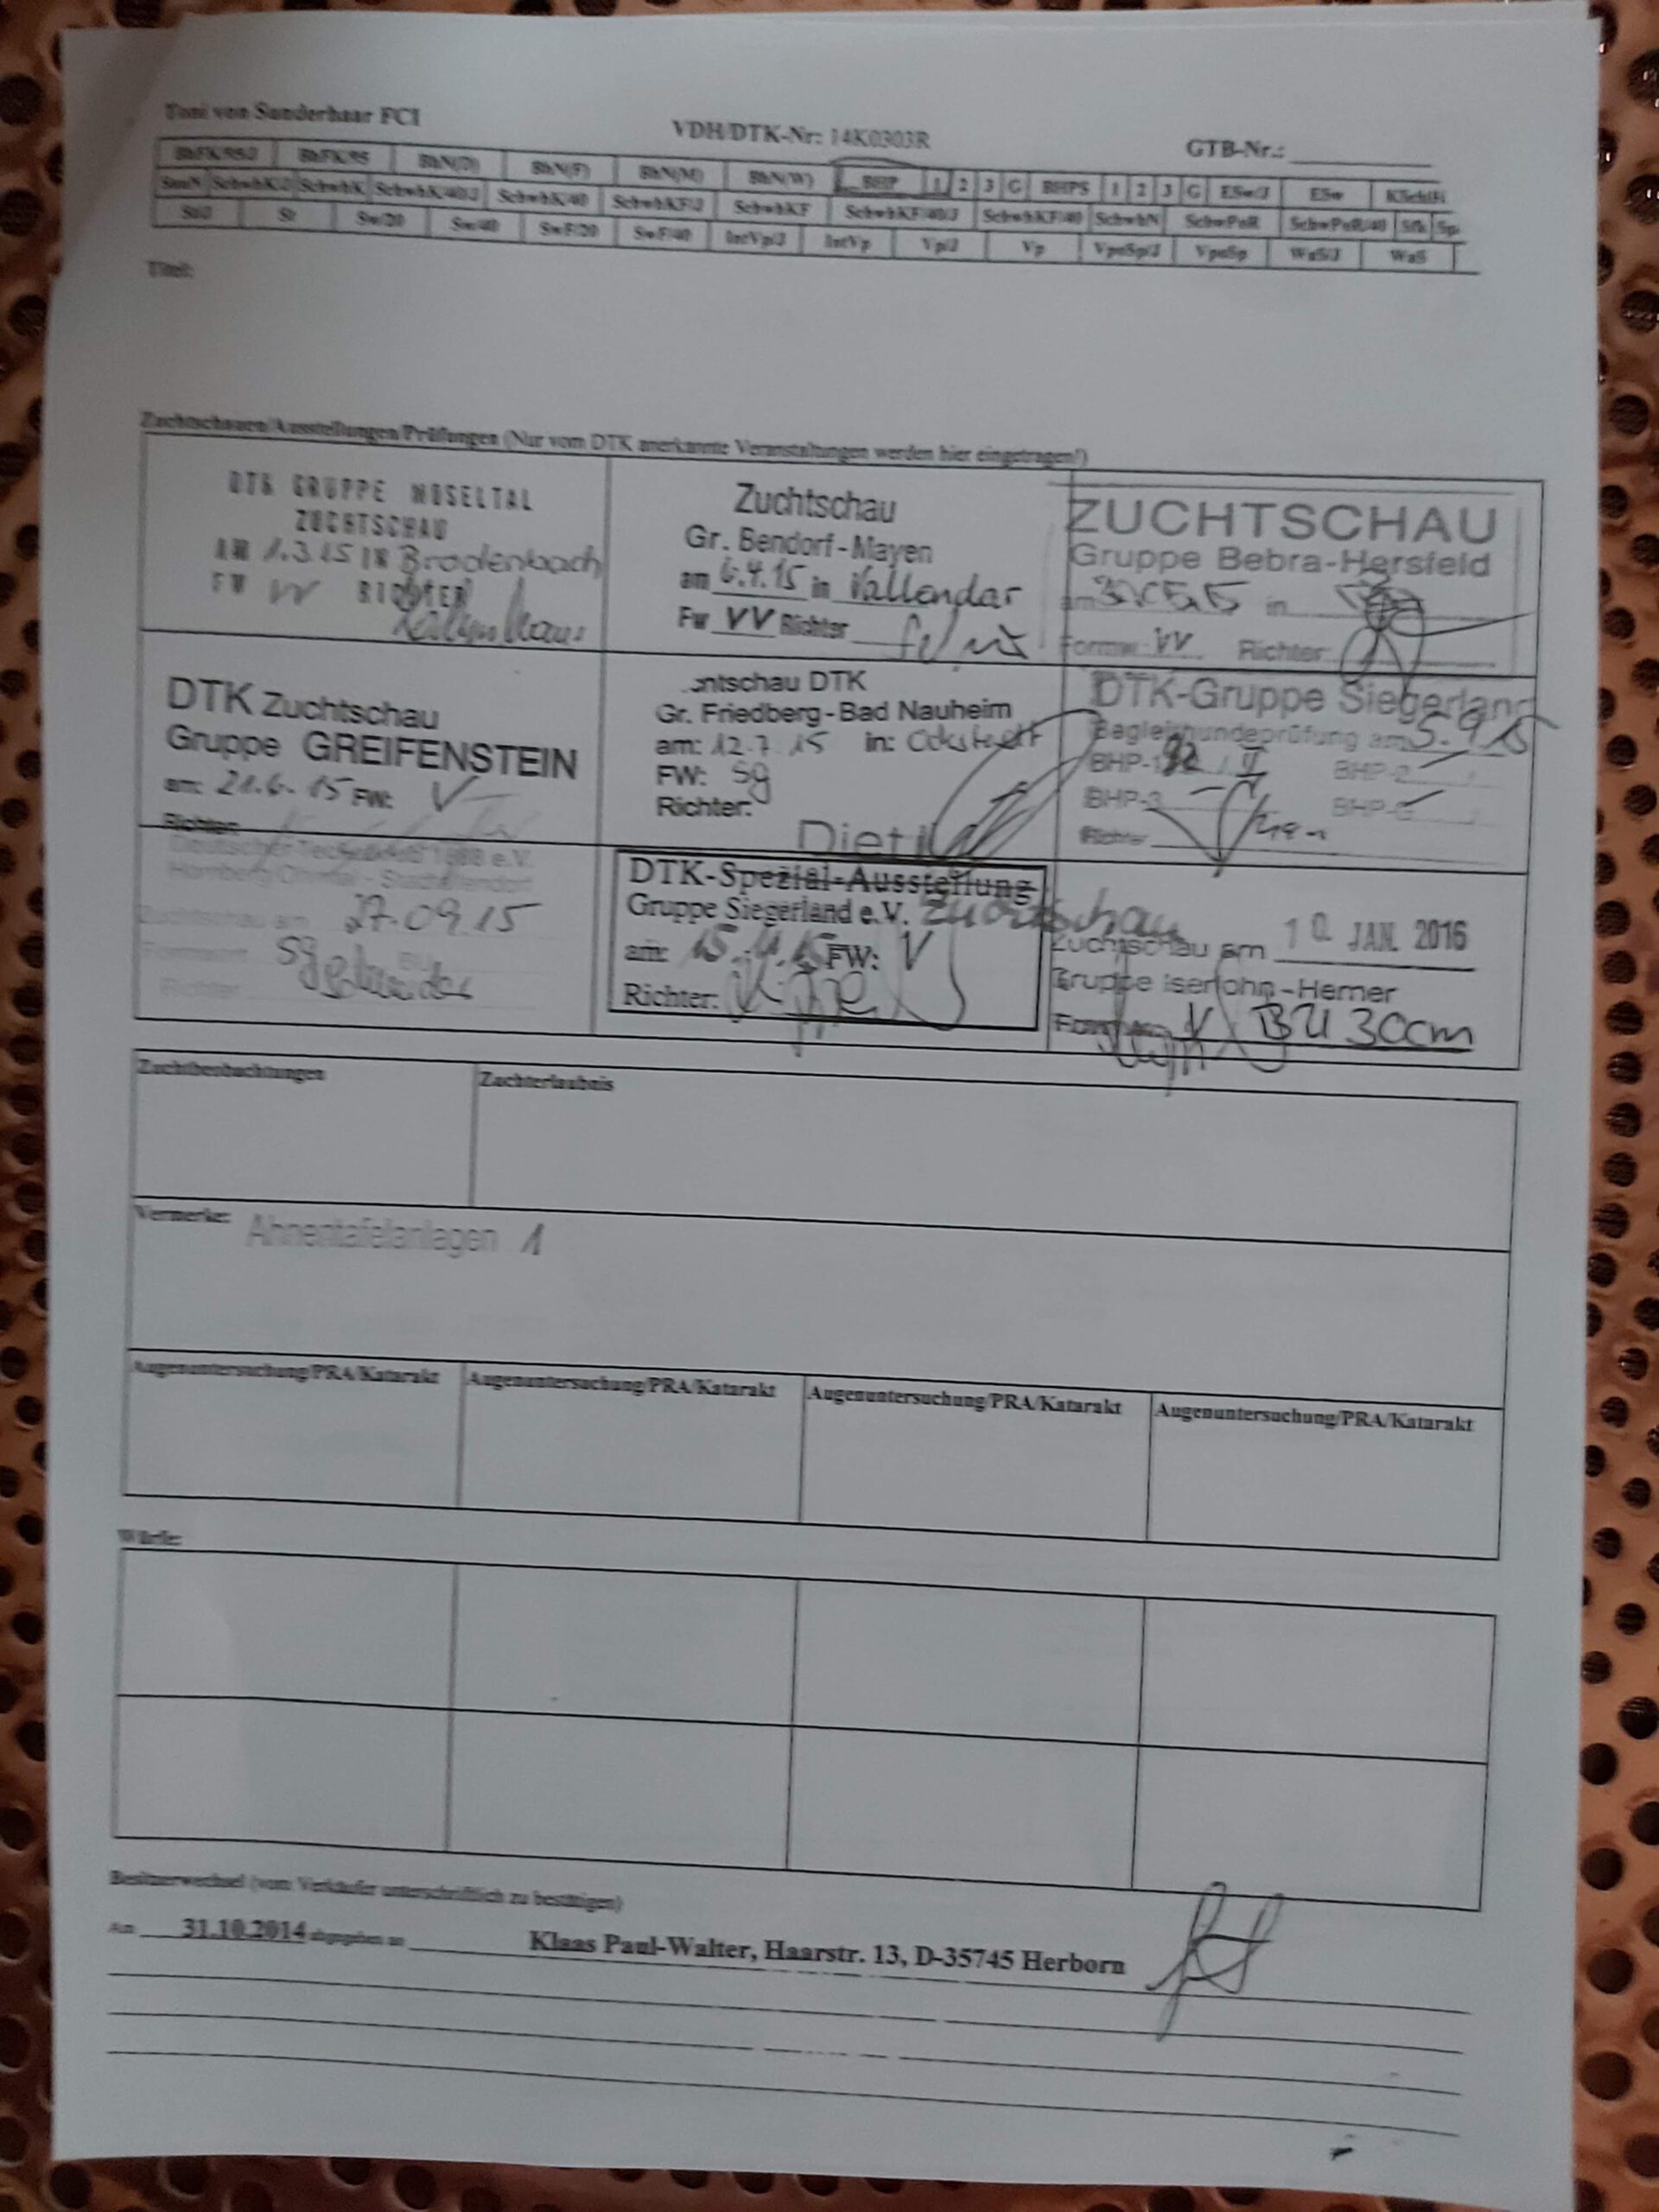 Toni von Sunderhaar FCI VDH/DTK-Nr: 14K0303R GTB-Nr.:
BhFK/95/J BhFK/95 BhN(D) BhN(F) BhN(M) BhN(W) BHP 1 2 3 G BHPS 1 2 3 G ESw/J ESw KSchlH
SauN SchwhK/J SchwhK SchwhK/40/J SchwhK/40 SchwhKF/J SchwhKF SchwhKF/40/J SchwhKF/40 SchwhN SchwPoR SchwPoR/40 Sfk Sp
St/J St Sw/20 Sw/40 SwF/20 SwF/40 IntVp/J IntVp Vp/J Vp VpoSp/J VpoSp WaS/J WaS
Titel:
Zuchtschauen/Ausstellungen/Prüfungen (Nur vom DTK anerkannte Veranstaltungen werden hier eingetragen!)
DTK GRUPPE MOSELTAL
ZUCHTSCHAU
AM 1.3.15 IN Brodenbach
FW VV RICHTER
Zuchtschau
Gr. Bendorf-Mayen
am 6.4.15 in Vallendar
Fw VV Richter
ZUCHTSCHAU
Gruppe Bebra-Hersfeld
am in
Formw. VV Richter:
DTK Zuchtschau
Gruppe GREIFENSTEIN
am: 21.6.15 FW: V
Richter:
ntschau DTK
Gr. Friedberg-Bad Nauheim
am: 12.7.15 in: Ockstadt
FW: Sg
Richter:
DTK-Gruppe Siegerland
Begleithundeprüfung am 5.9.15
BHP-1 92 / II BHP-2
BHP-3 BHP-G
Richter
Deutscher Teckelklub 1888 e.V.
27.09.15
Zuchtschau am
Formwert Sg
Richter
DTK-Spezial-Ausstellung
Gruppe Siegerland e.V. Zuchtschau
am: 15.11.15 FW: V
Richter:
Zuchtschau am 10. JAN. 2016
Gruppe Iserlohn-Hemer
Formw. V BU 30cm
Zuchtbeobachtungen Zuchterlaubnis
Vermerke: Ahnentafelanlagen 1
Augenuntersuchung/PRA/Katarakt Augenuntersuchung/PRA/Katarakt Augenuntersuchung/PRA/Katarakt Augenuntersuchung/PRA/Katarakt
Würfe:
Besitzerwechsel (vom Verkäufer unterschriftlich zu bestätigen)
Am 31.10.2014 abgegeben an Klaas Paul-Walter, Haarstr. 13, D-35745 Herborn